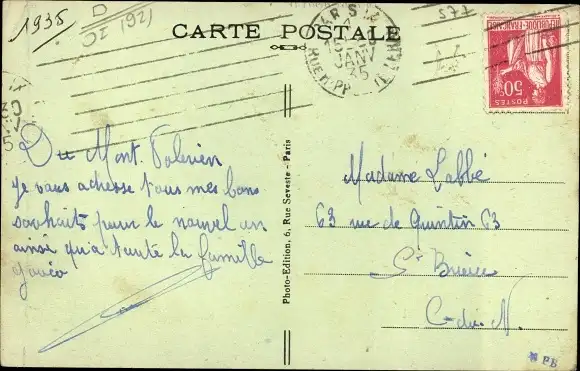 1935
D
OI (92)
CARTE POSTALE
JANV
35
775
RÉPUBLIQUE FRANÇAISE
50c
POSTES
Du Mont Valérien
Je vous adresse tous mes bons
souhaits pour le nouvel an
ainsi qu'à toute la famille
Photo-Edition, 6, Rue Seveste - Paris
Madame Labbé
63 rue de Quintin 63
St Brieuc
C-du-N.
PB